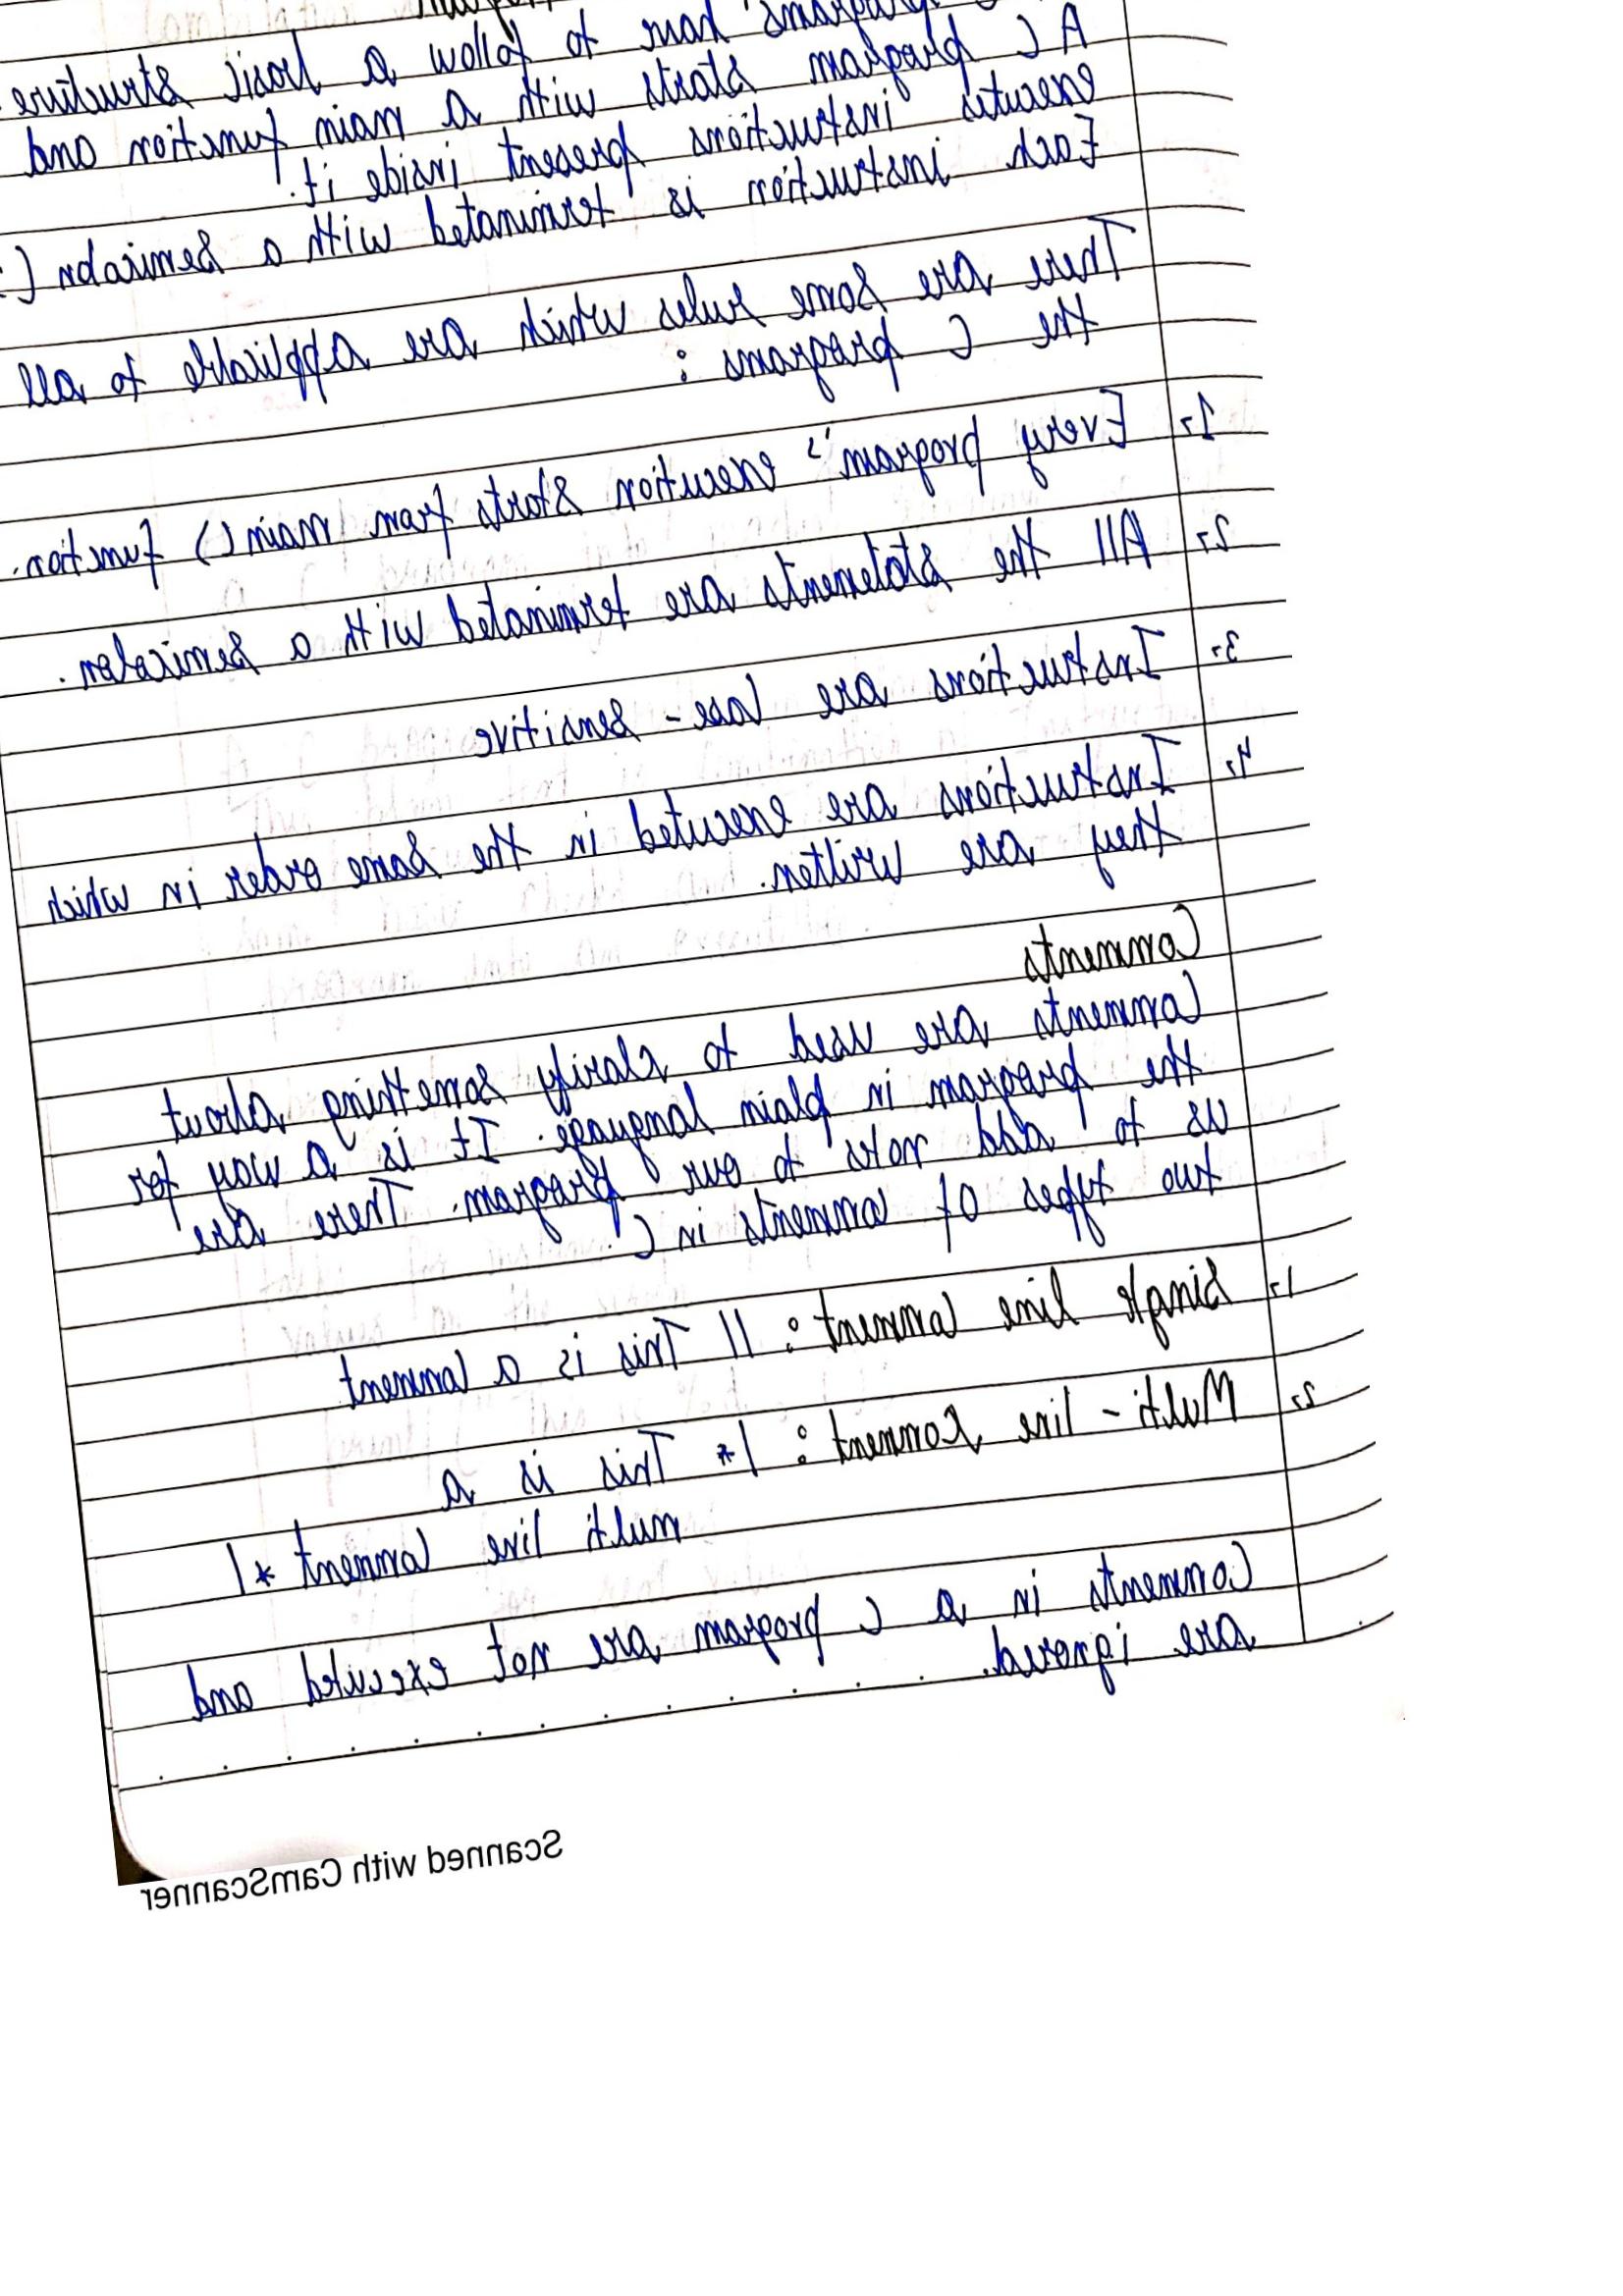 programs have to follow a basic structure.
A C program starts with a main function and
executes instructions present inside it.
Each instruction is terminated with a semicolon (
There are some rules which are applicable to all
the C programs :
1. Every program's execution starts from main() function.
2. All the statements are terminated with a semicolon.
3. Instructions are case - sensitive
4. Instructions are executed in the same order in which
they are written.
Comments
Comments are used to clarify something about
the program in plain language. It is a way for
us to add notes to our program. There are
two types of comments in C.
1. Single line comment : // This is a comment
2. Multi - line comment : /* This is a
multi line comment */
Comments in a C program are not executed and
are ignored.
Scanned with CamScanner